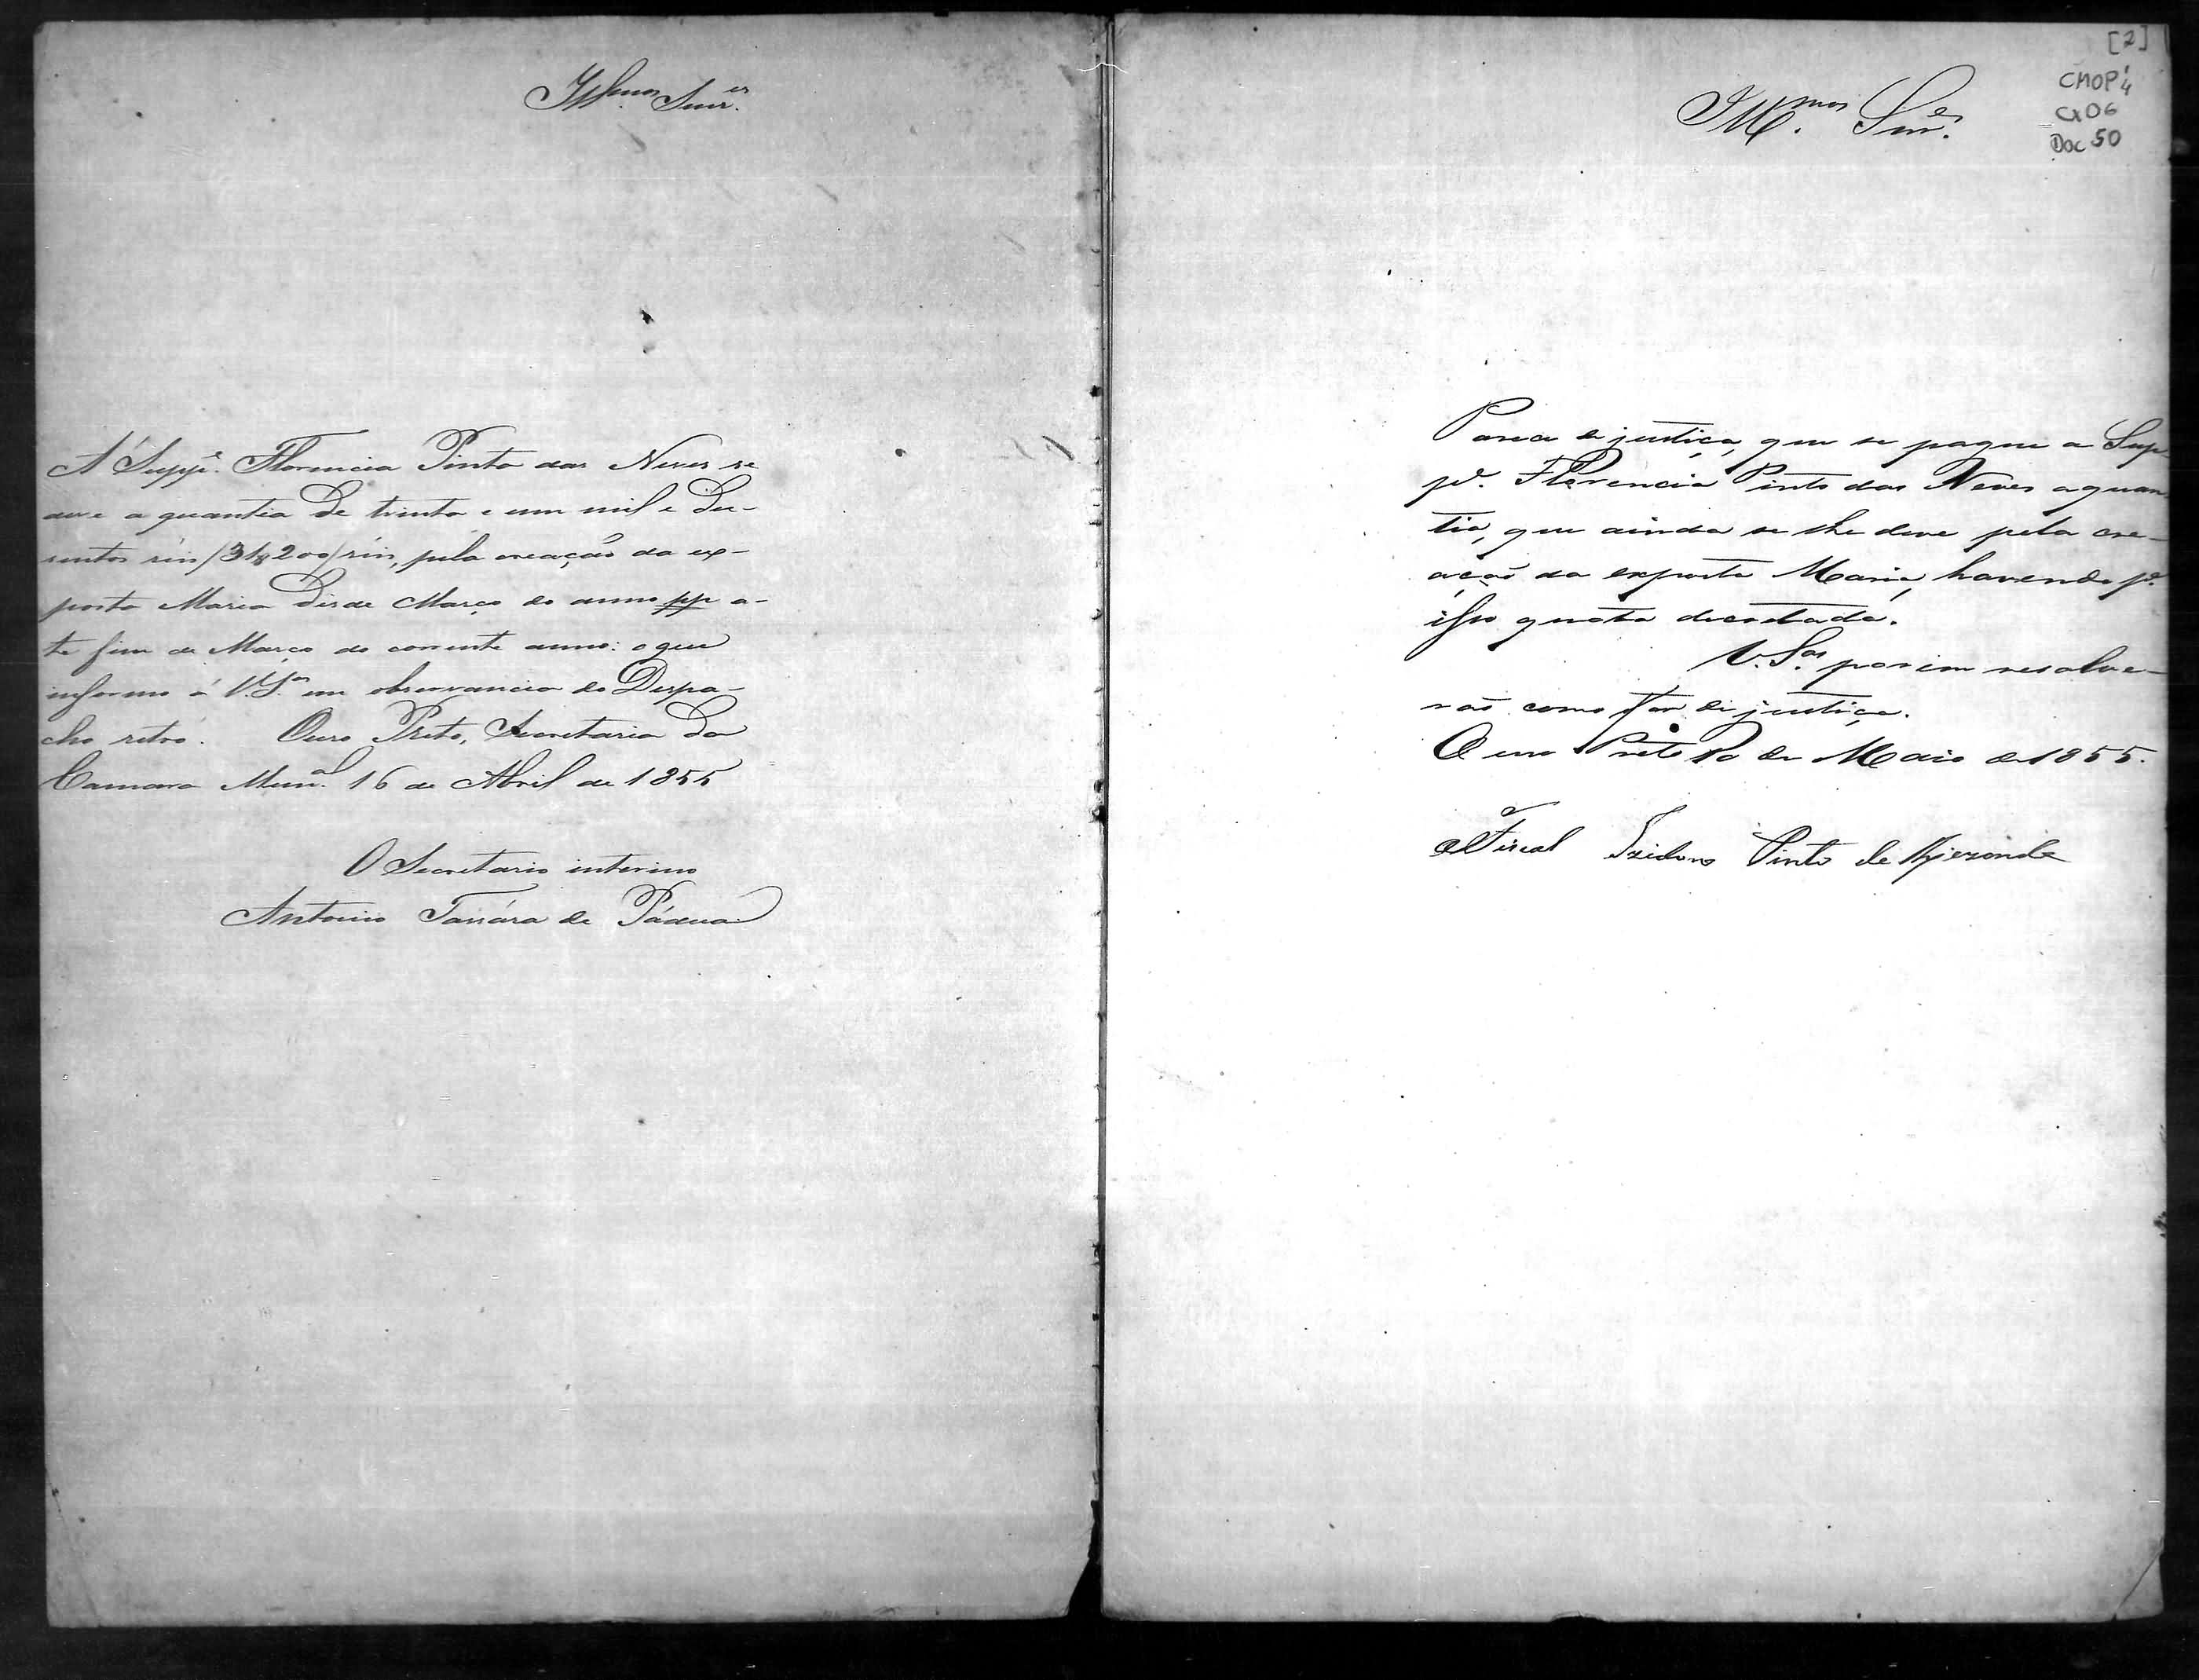 Illmos Snres.
A Suppe. Florencia Pinto das Neves se
deve a quantia de trinta e um mil e du-
sentos reis /31$200/ reis, pela creação da ex-
posta Maria desde Março do anno pp a-
te fim de Março do corrente anno: o que
informo á V.Sas em observancia do Despa-
cho retro. Ouro Preto, Secretaria da
Camara Munal. 16 de Abril de 1855
O Secretario interino
Antonio de Pádua
[2]
CMOP
CX06
Doc 50
Illmos. Snres.
Parece de justiça, que se pague a Sup-
pe. Florencia Pinto das Neves a quan-
tia, que ainda se lhe deve pela cre-
ação da exposta Maria, havendo pa.
isso quota decretada.
V.Sas. porem resolve-
rão como for de justiça.
Ouro Preto de Maio de 1855.
O Fiscal Izidoro Pinto de Rezende